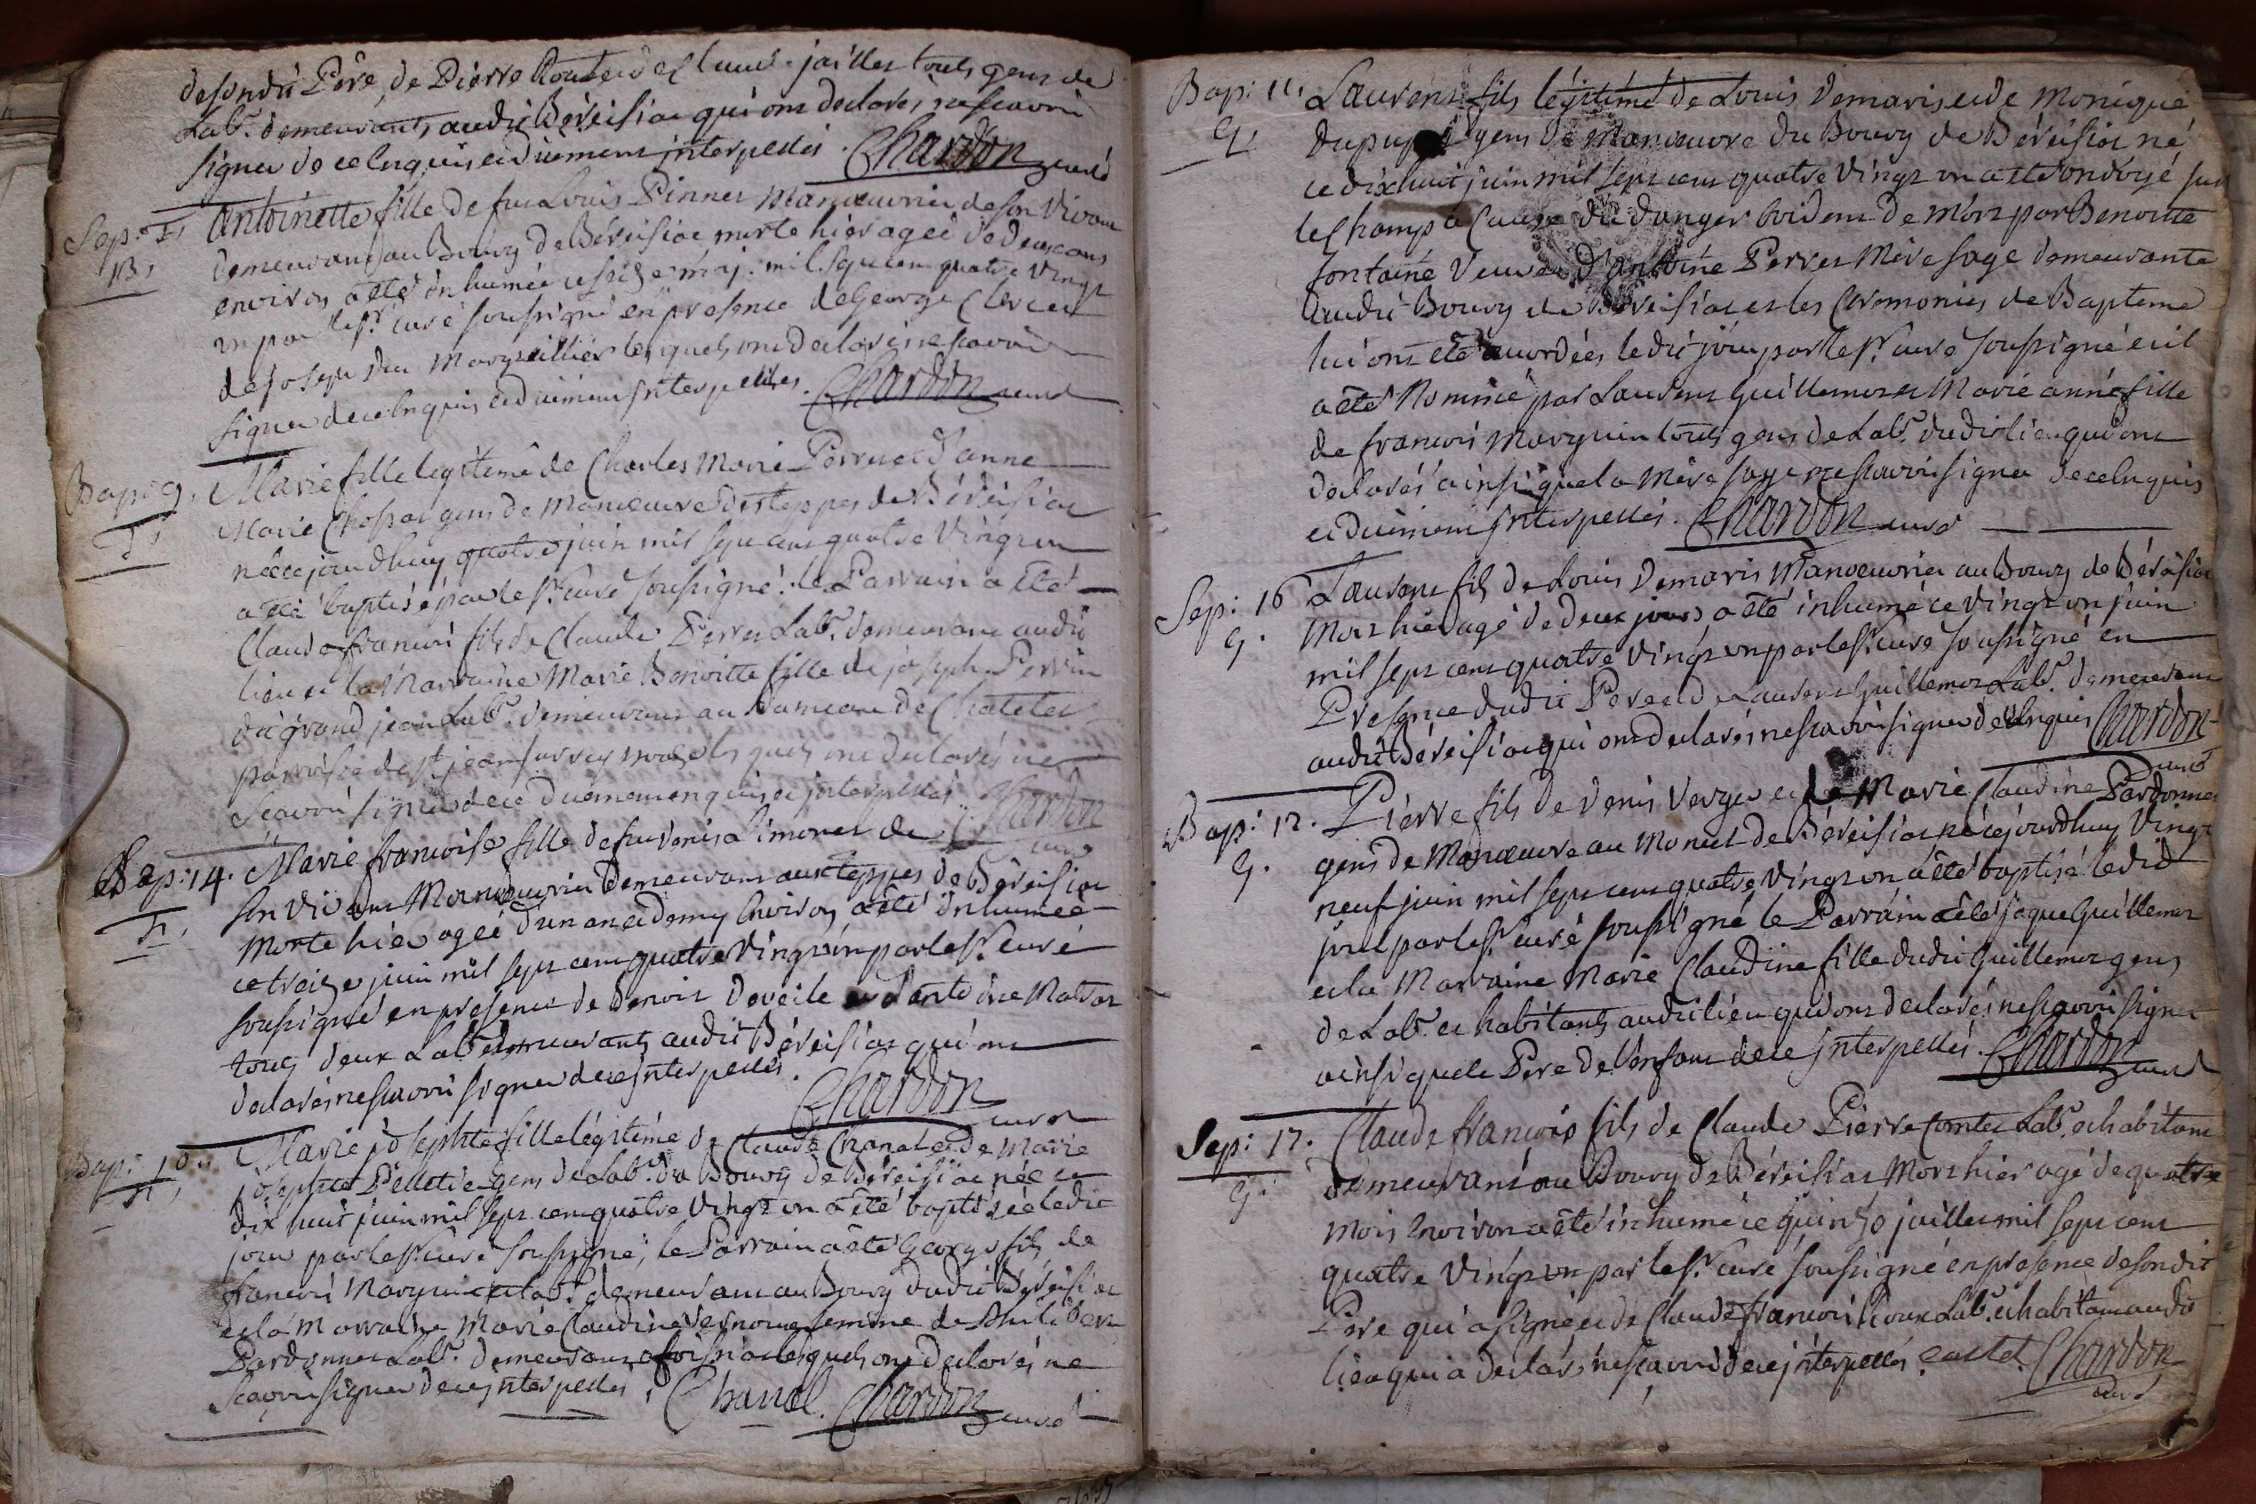 de son dit Père, de Pierre et Claude jaillet touts gens de
Lab.r demeurants audit Béréisiac qui ont declarés ne scavoir
signer de ce enquis et duement interpellés . Chardon curé
Sep:
B,
Antoinette fille de feu Louis Pinner Manœuvrier de son vivant
demeurant au Bourg de Béréisiac morte hier agée de deux ans
environ a été inhumée ce seize may mil sept cent quatre vingt
un par le s.r curé soussigné en presence de George Clerc et
de joseph du Marguillier lesquels ont declarés ne scavoir
signer de ce enquis et duement interpellés . Chardon curé
Bap: 9,
d,
Marie fille legitime de Charles Marie Perruc et d'anne
Marie Chossat gens de manœuvre des teppes de Béréisiac
née ce jourdhuy quatre juin mil sept cent quatre vingt un
a été baptisée par le s.r curé soussigné: le Parrain a été
Claude francois fils de Claude Perret Lab.r demeurant audit
lieu et la Marraine Marie Benoitte fille de joseph Perrin
du grand jean Lab.r demeurant au hameau de Chatelet
parroisse de s.t jean sur lesquels ont declarés ne
scavoir signer de ce duement enquis et interpellés Chardon
curé
Sep: 14.
h,
Marie francoise fille de feu denis Simonet de
son vivant Manœuvrier demeurant aux teppes de Béréisiac
morte hier agée d'un an et demy environ a été inhumée
ce treize juin mil sept cent quatre vingt un par le s.r curé
soussigné en presence de Benoit doveile et d'antoine
touts deux Lab.r demeurants audit Béréisiac qui ont
declarés ne scavoir signer de ce interpellés .
Chardon
curé
Bap: 10.
h,
Marie josephte fille légitime de Claude Chanal et de Marie
josephte Pelletier gens de Lab.r du Bourg de Béréisiac née ce
dix huit juin mil sept cent quatre vingt un a été baptisée le dit
jour par le s.r curé soussigné, le Parrain a été George fils de
francois Marguin Lab.r demeurant au Bourg dudit Béréisiac
et la Marraine Marie Claudine femme de Philibert
Pardonnet Lab.r demeurant a foissia lesquels ont declarés ne
scavoir signer de ce interpellés , Chanal . Chardon curé
Bap: 11,
G,
Laurent fils légitime de Louis demaris et de monique
dupup gens de manœuvre du Bourg de Béréisiac né
ce dix huit juin mil sept cent quatre vingt un a été ondoyé sur
le champ a cause du danger évident de mort par Benoitte
fontaine veuve d'antoine Perret Mère sage demeurante
audit Bourg de Béréisiac et les Ceremonies de Bapteme
lui ont été accordées le dit jour par le s.r curé soussigné et il
a été nommé par Laurent Guillemot et Marie anne fille
de francois Marguin touts gens de Lab.r dudit lieu qui ont
declarés ainsi que la Mère sage ne scavoir signer de ce enquis
et duement interpellés . Chardon curé
Sep: 16
G.
Laurent fils de Louis demaris Manœuvrier au Bourg de Béréisiac
Mort hier agé de deux jours a été inhumé ce vingt un juin
mil sept cent quatre vingt un par le s.r curé soussigné en
Presence dudit Père et de Laurent Guillemot Lab.r demeurant
audit Béréisiac qui ont declarés ne scavoir signer de ce enquis Chardon
curé
Bap: 12.
G.
Pierre fils de denis Verger et de Marie Claudine Pardonnet
gens de Manœuvre au Monet de Béréisiac né ce jourdhuy vingt
neuf juin mil sept cent quatre vingt un a été baptisé le dit
jour par le s.r curé soussigné le Parrain a été jaque Guillemot
et la Marraine Marie Claudine fille dudit Guillemot gens
de Lab.r et habitants audit lieu qui ont declarés ne scavoir signer
ainsi que le Père de l'enfant de ce interpellés . Chardon
curé
Sep: 17.
G.
Claude francois fils de Claude Pierre Comtet Lab.r et habitant
demeurant au Bourg de Béréisiac Mort hier agé de quatre
mois environ a été inhumé ce quinze juillet mil sept cent
quatre vingt un par le s.r curé soussigné en presence de son dit
Père qui a signé et de Claude francois Lab.r et habitant audit
lieu qui a declaré ne scavoir de ce interpellés . Chardon
curé